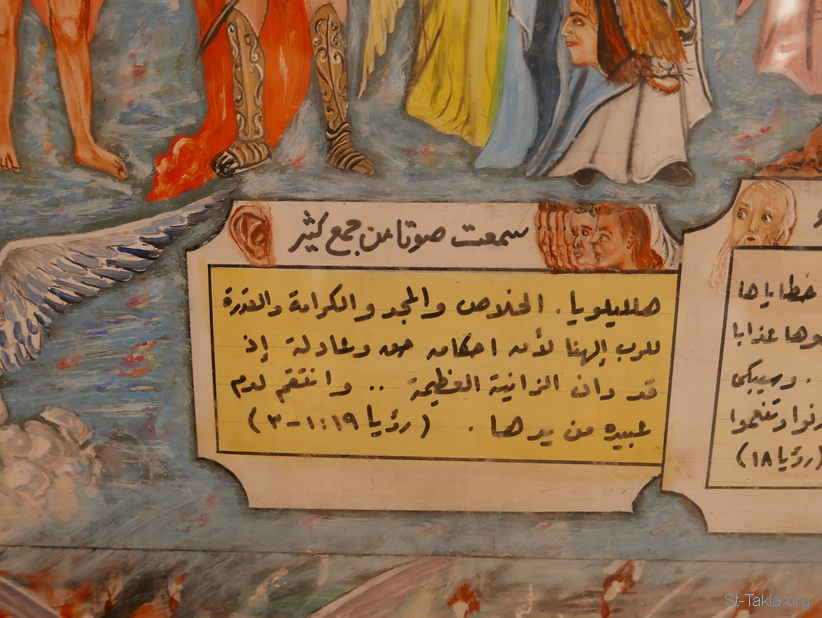 سمعت صوتا من جمع كثير
هلليلويا. الخلاص والمجد والكرامة والقدرة
للرب إلهنا لأن احكامه حق وعادلة إذ
قد دان الزانية العظيمة .. وانتقم لدم
عبيده من يدها. (رؤيا ١٩:١-٣)
خطاياها
عذابا
. وسيبكي
وتنعموا
(رؤيا ١٨)
St-Takla.org